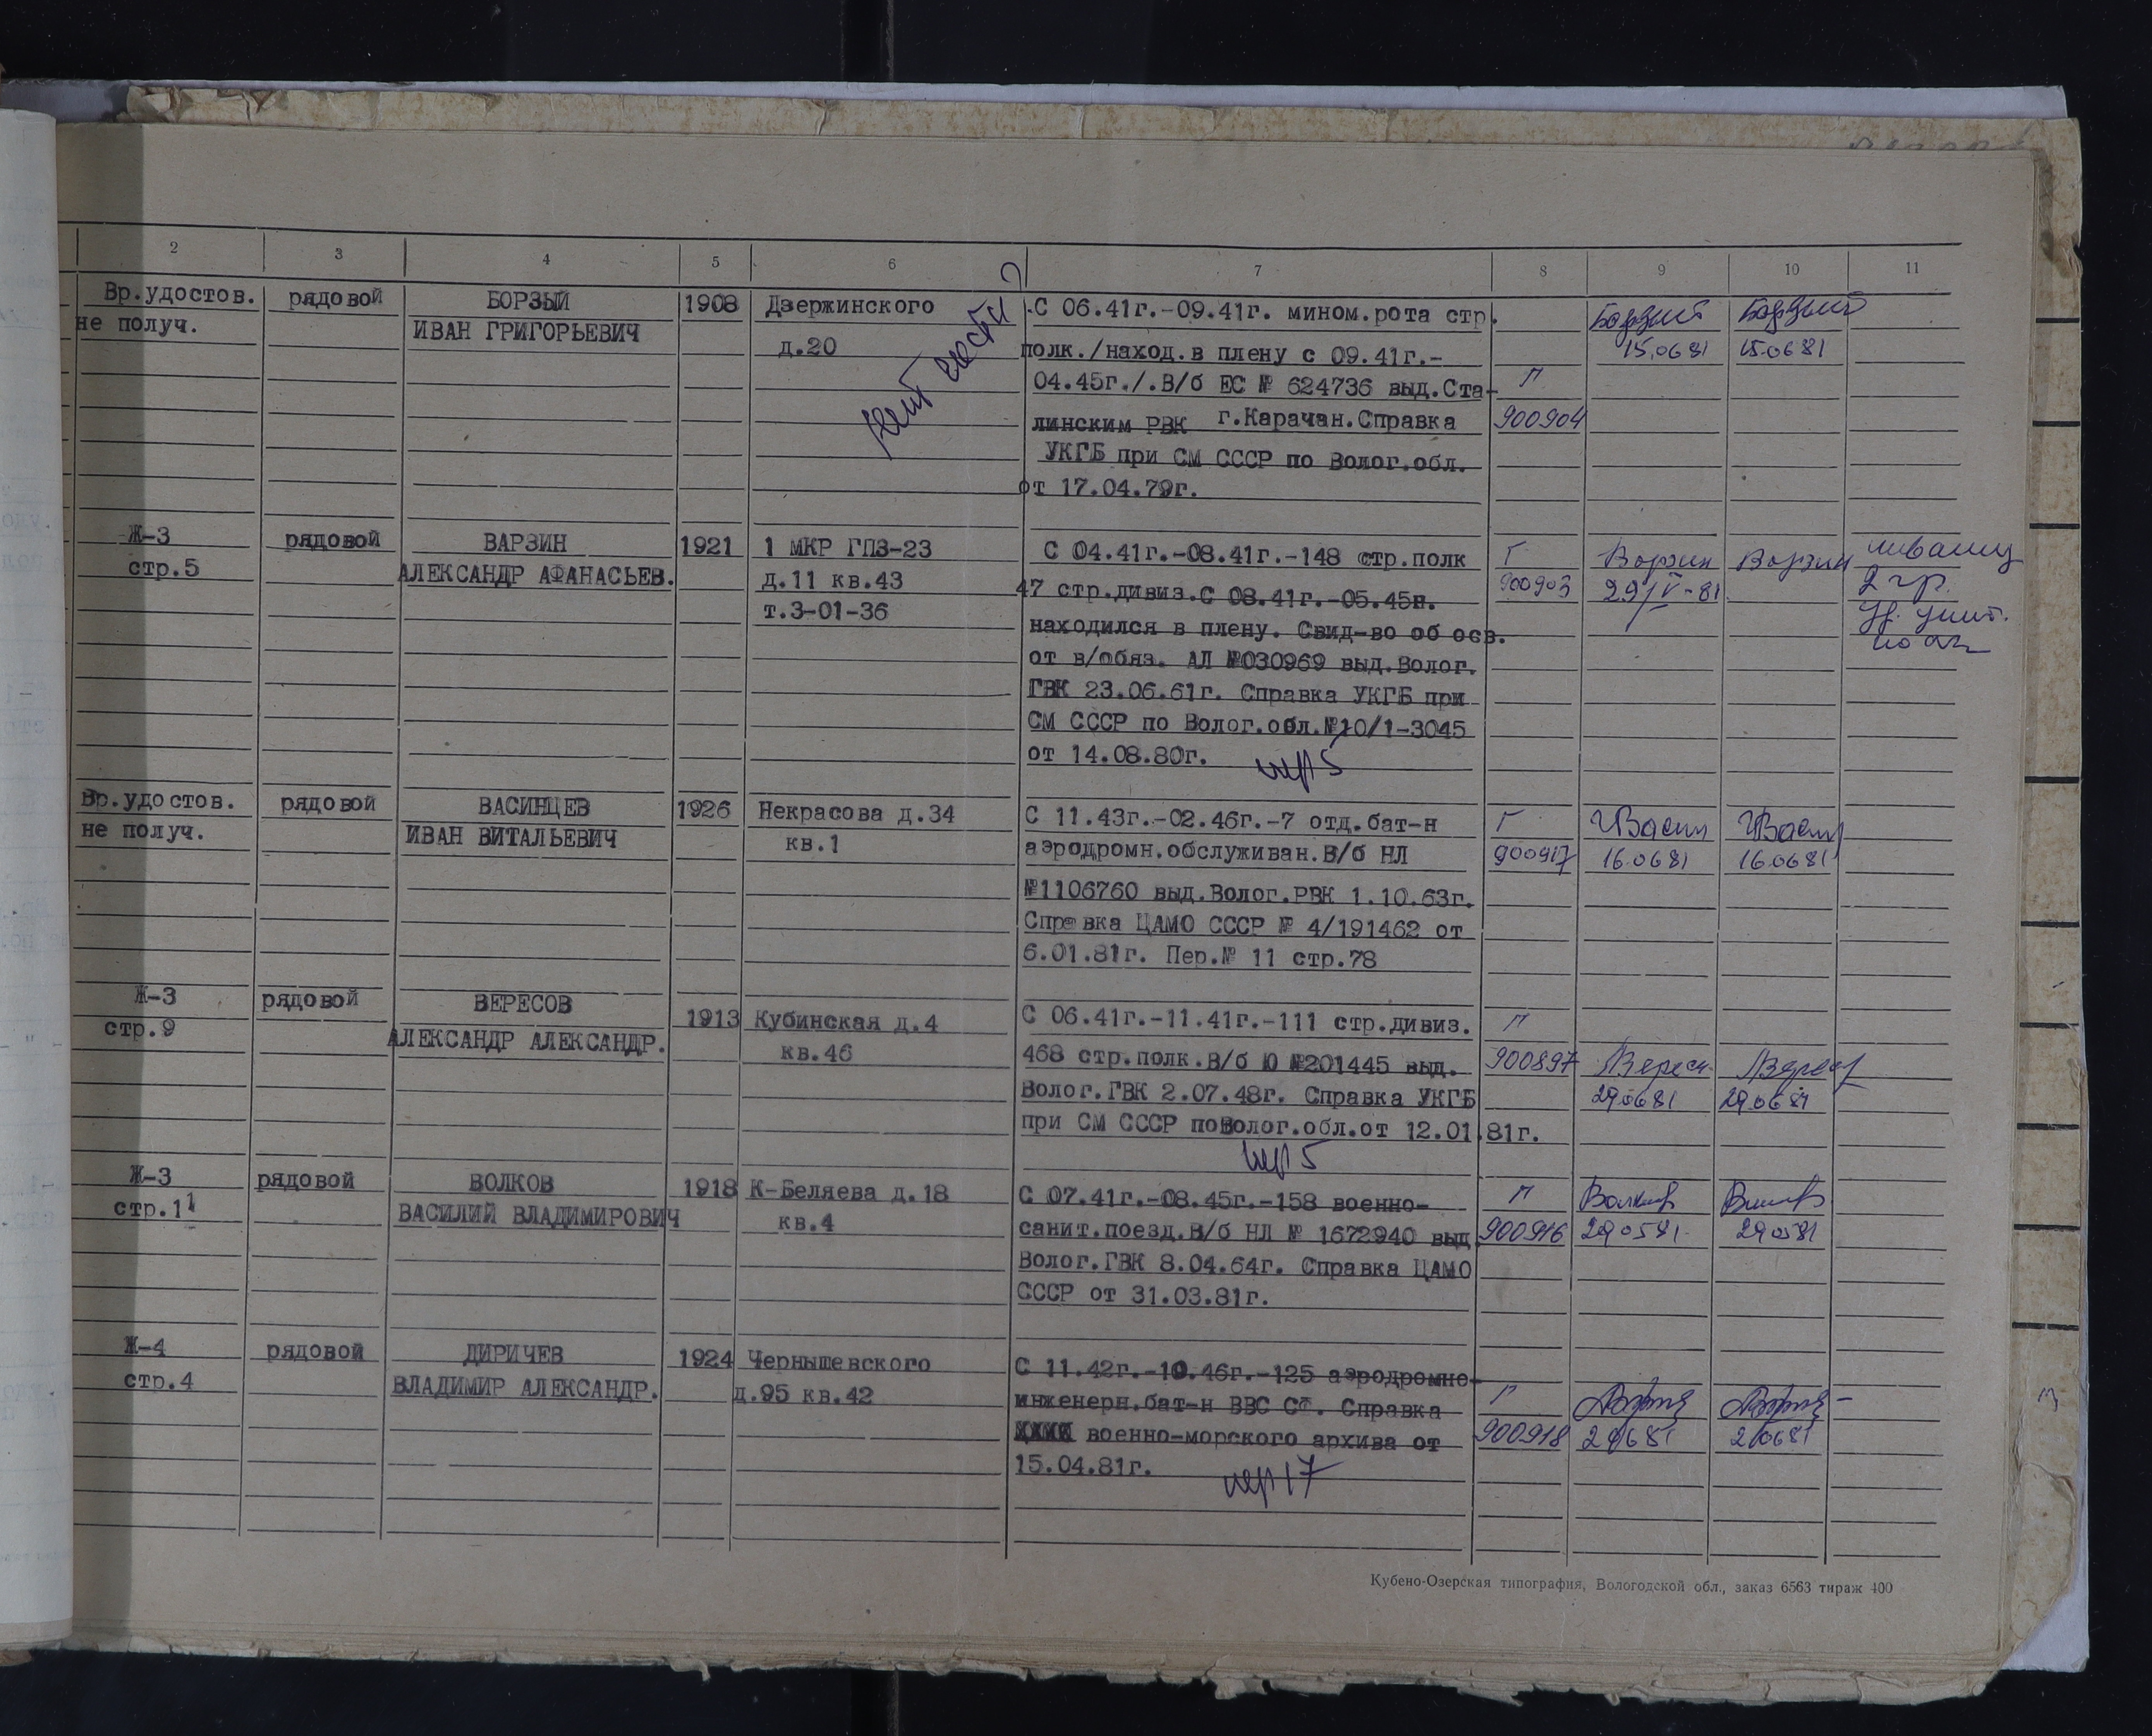 2 3 4 5 6 7 8 9 10 11
Вр.удостов. рядовой БОРЗЫЙ 1908 Дзержинского С 06.41г.-09.41г. мином.рота стр. Борзий Борзий
не получ. ИВАН ГРИГОРЬЕВИЧ д.20 полк./наход.в плену с 09.41г.- 15.06 81 15.06 81
04.45г./.В/б ЕС № 624736 выд.Ста- Г
линским РВК г.Карачан.Справка 900904
УКГБ при СМ СССР по Волог.обл.
от 17.04.79г.
Ж-3 рядовой ВАРЗИН 1921 1 МКР ГПЗ-23 С 04.41г.-08.41г.-148 стр.полк Г Варзин Варзин инвалид
стр.5 АЛЕКСАНДР АФАНАСЬЕВ. д.11 кв.43 47 стр.дивиз.С 08.41г.-05.45г. 900903 29/V-81 2 гр.
т.3-01-36 находился в плену. Свид-во об осв.
от в/обяз. АЛ №030969 выд.Волог.
ГВК 23.06.61г. Справка УКГБ при
СМ СССР по Волог.обл.№10/1-3045
от 14.08.80г. пер 5
Вр.удостов. рядовой ВАСИНЦЕВ 1926 Некрасова д.34 С 11.43г.-02.46г.-7 отд.бат-н Г
не получ. ИВАН ВИТАЛЬЕВИЧ кв.1 аэродромн.обслуживан.В/б НЛ 900917 16.06 81 16.06 81
№1106760 выд.Волог.РВК 1.10.63г.
Справка ЦАМО СССР № 4/191462 от
6.01.81г. Пер.№ 11 стр.78
Ж-3 рядовой ВЕРЕСОВ 1913 Кубинская д.4 С 06.41г.-11.41г.-111 стр.дивиз. Г
стр.9 АЛЕКСАНДР АЛЕКСАНДР. кв.46 468 стр.полк.В/б Ю №201445 выд. 900897
Волог.ГВК 2.07.48г. Справка УКГБ 290681 290681
при СМ СССР поВолог.обл.от 12.01.81г.
пер 5
Ж-3 рядовой ВОЛКОВ 1918 К-Беляева д.18 С 07.41г.-08.45г.-158 военно- Г Волков
стр.11 ВАСИЛИЙ ВЛАДИМИРОВИЧ кв.4 санит.поезд.В/б НЛ № 1672940 выд. 900916 290581 290581
Волог.ГВК 8.04.64г. Справка ЦАМО
СССР от 31.03.81г.
Ж-4 рядовой ДИРИЧЕВ 1924 Чернышевского С 11.42г.-10.46г.-125 аэродромно-
стр.4 ВЛАДИМИР АЛЕКСАНДР. д.95 кв.42 инженерн.бат-н ВВС СФ. Справка Г
военно-морского архива от 900918
15.04.81г. пер 17
Кубено-Озерская типография, Вологодской обл., заказ 6563 тираж 400